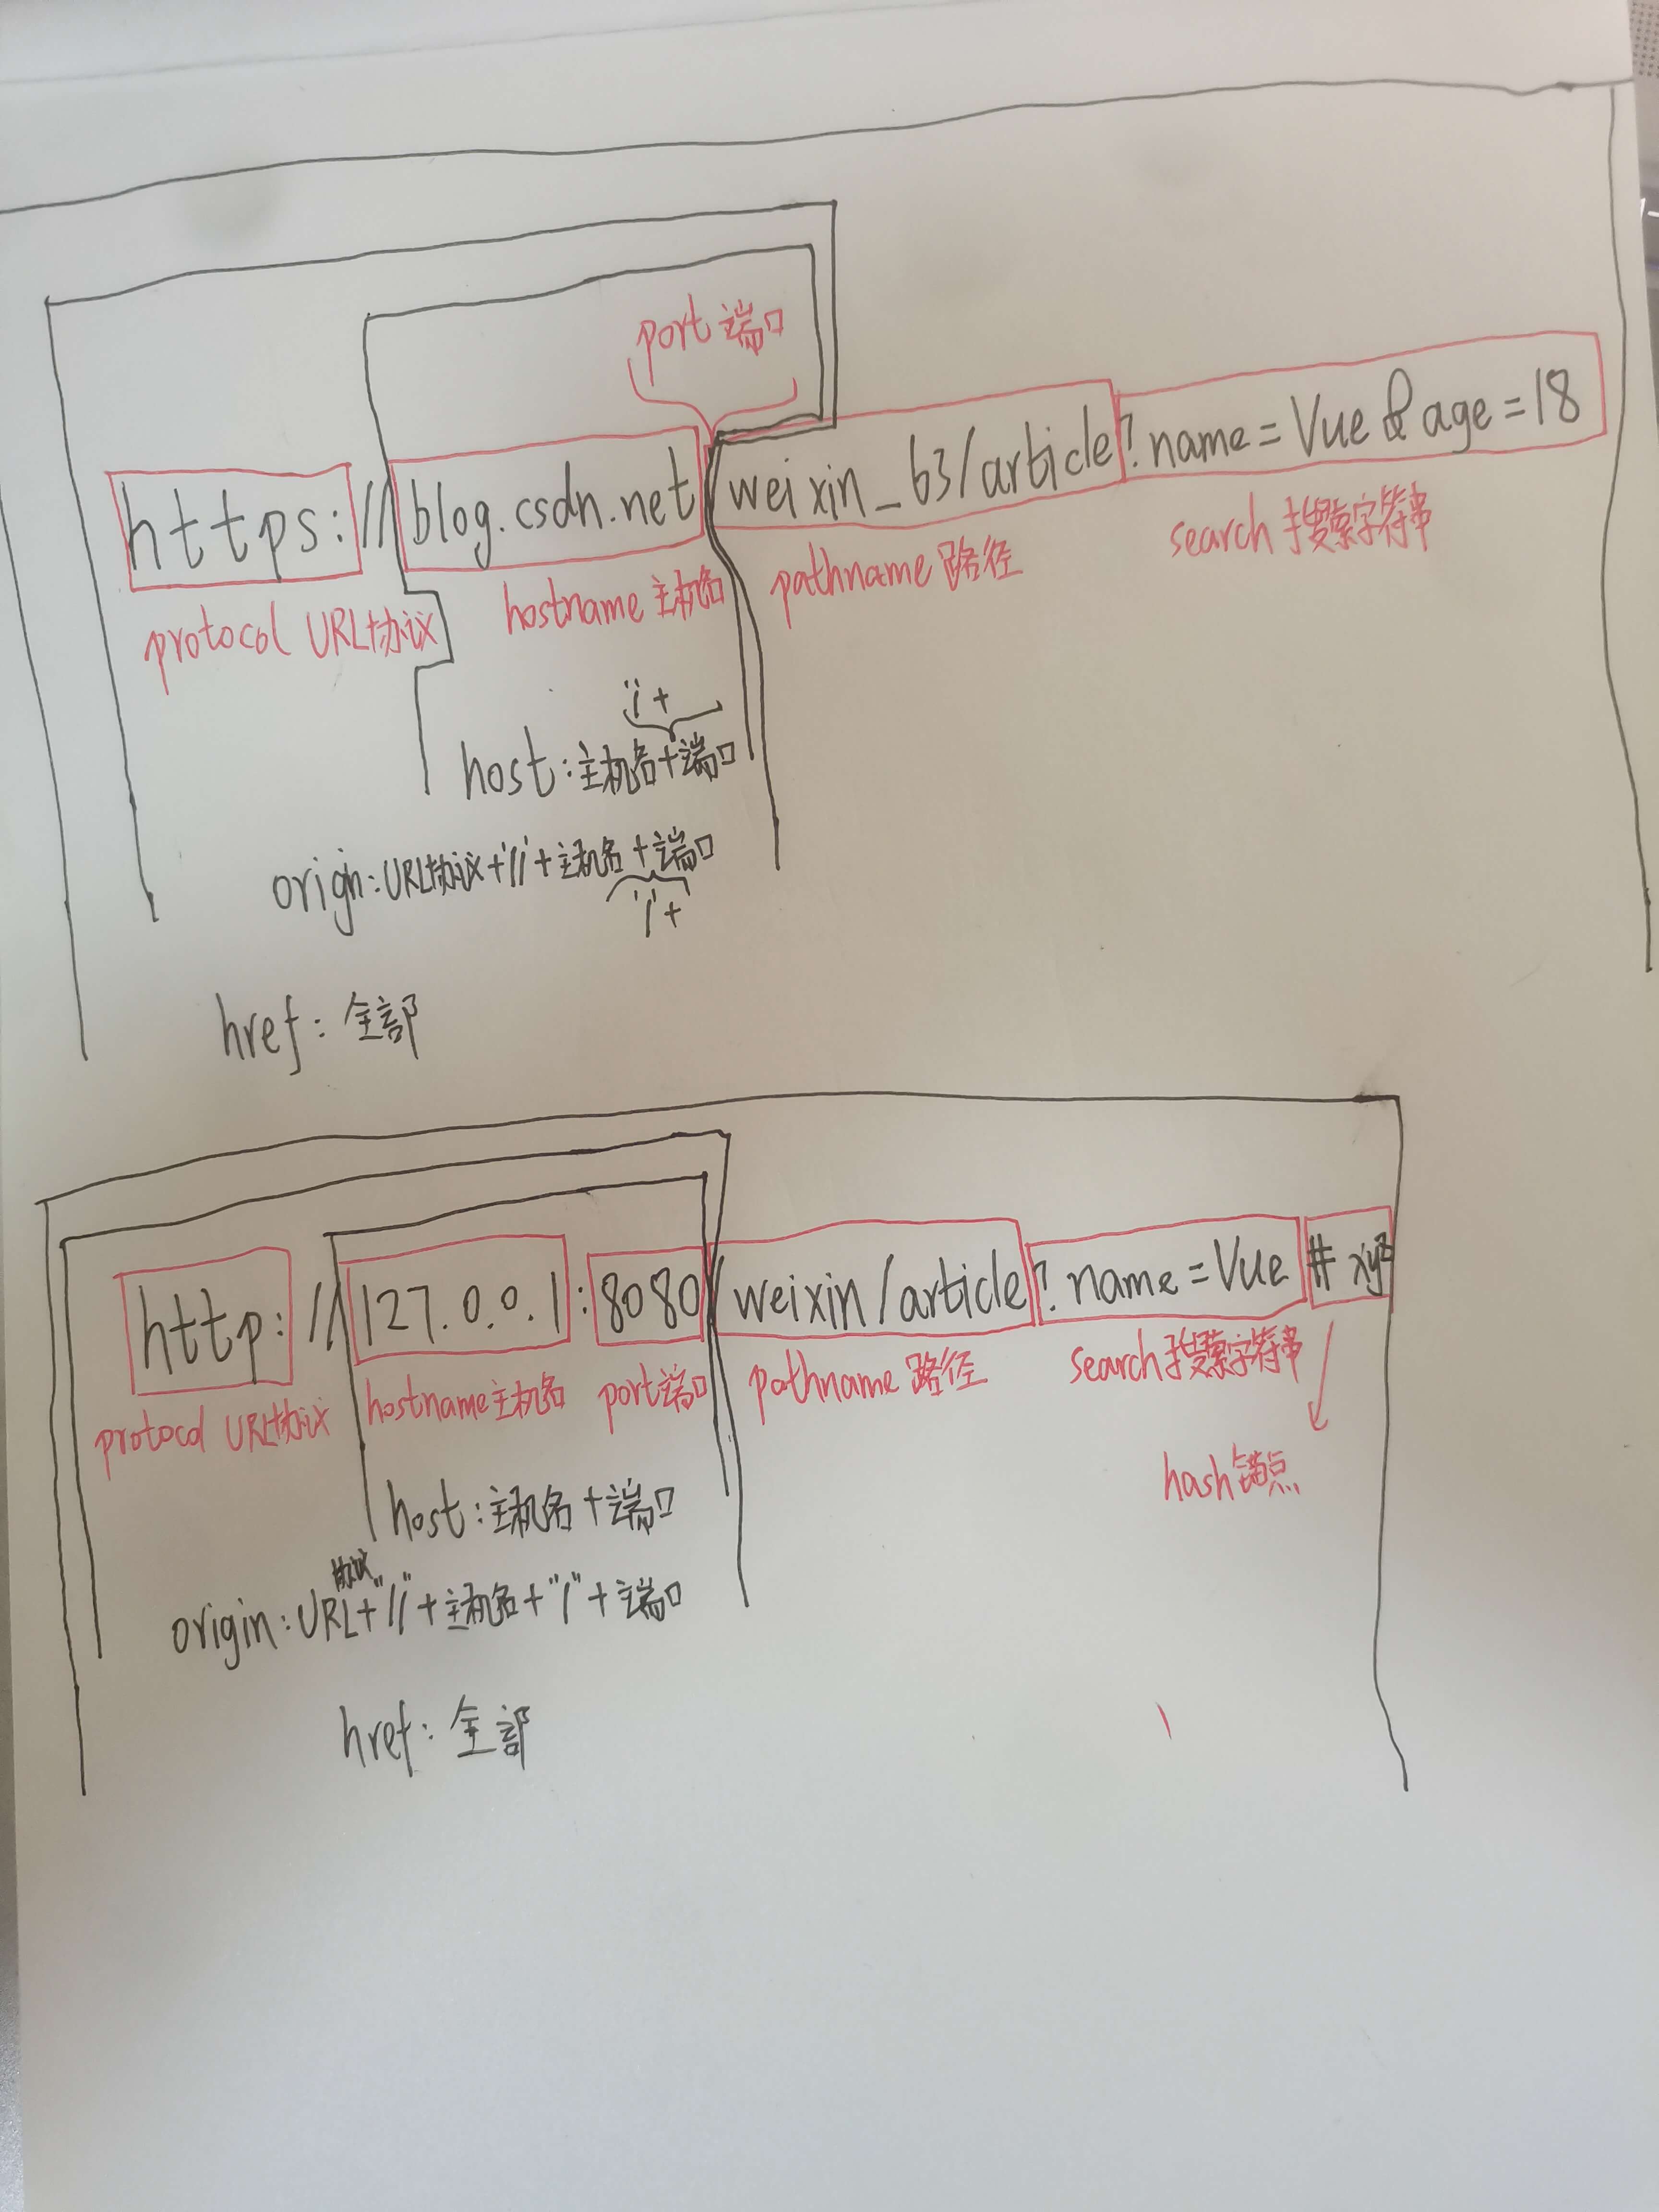 port 端口
https://blog.csdn.net/weixin_63/article?name=Vue&age=18
protocol URL协议 hostname 主机名 pathname 路径 search 搜索字符串
host:主机名+端口
origin:URL协议+'//'+主机名+端口
href:全部
http://127.0.0.1:8080/weixin/article?name=Vue#xyz
protocol URL协议 hostname主机名 port端口 pathname 路径 search搜索字符串
hash锚点
host:主机名+端口
协议
origin:URL+"//"+主机名+"/"+端口
href:全部